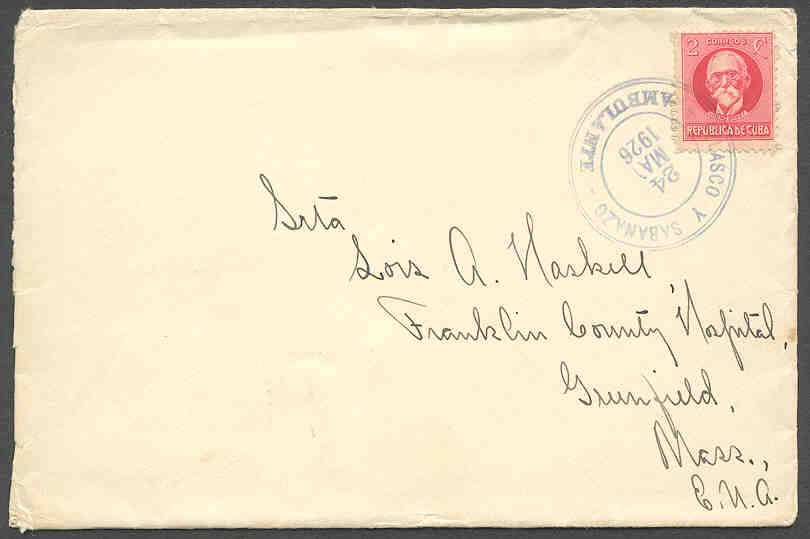 2 CORREOS Cº
REPUBLICA DE CUBA
AMBULANTE
ASCO Y SABANAZO -
24
MAY
1926
Srta
Lois A. Haskell,
Franklin County Hospital,
Greenfield,
Mass.,
E.U.A.